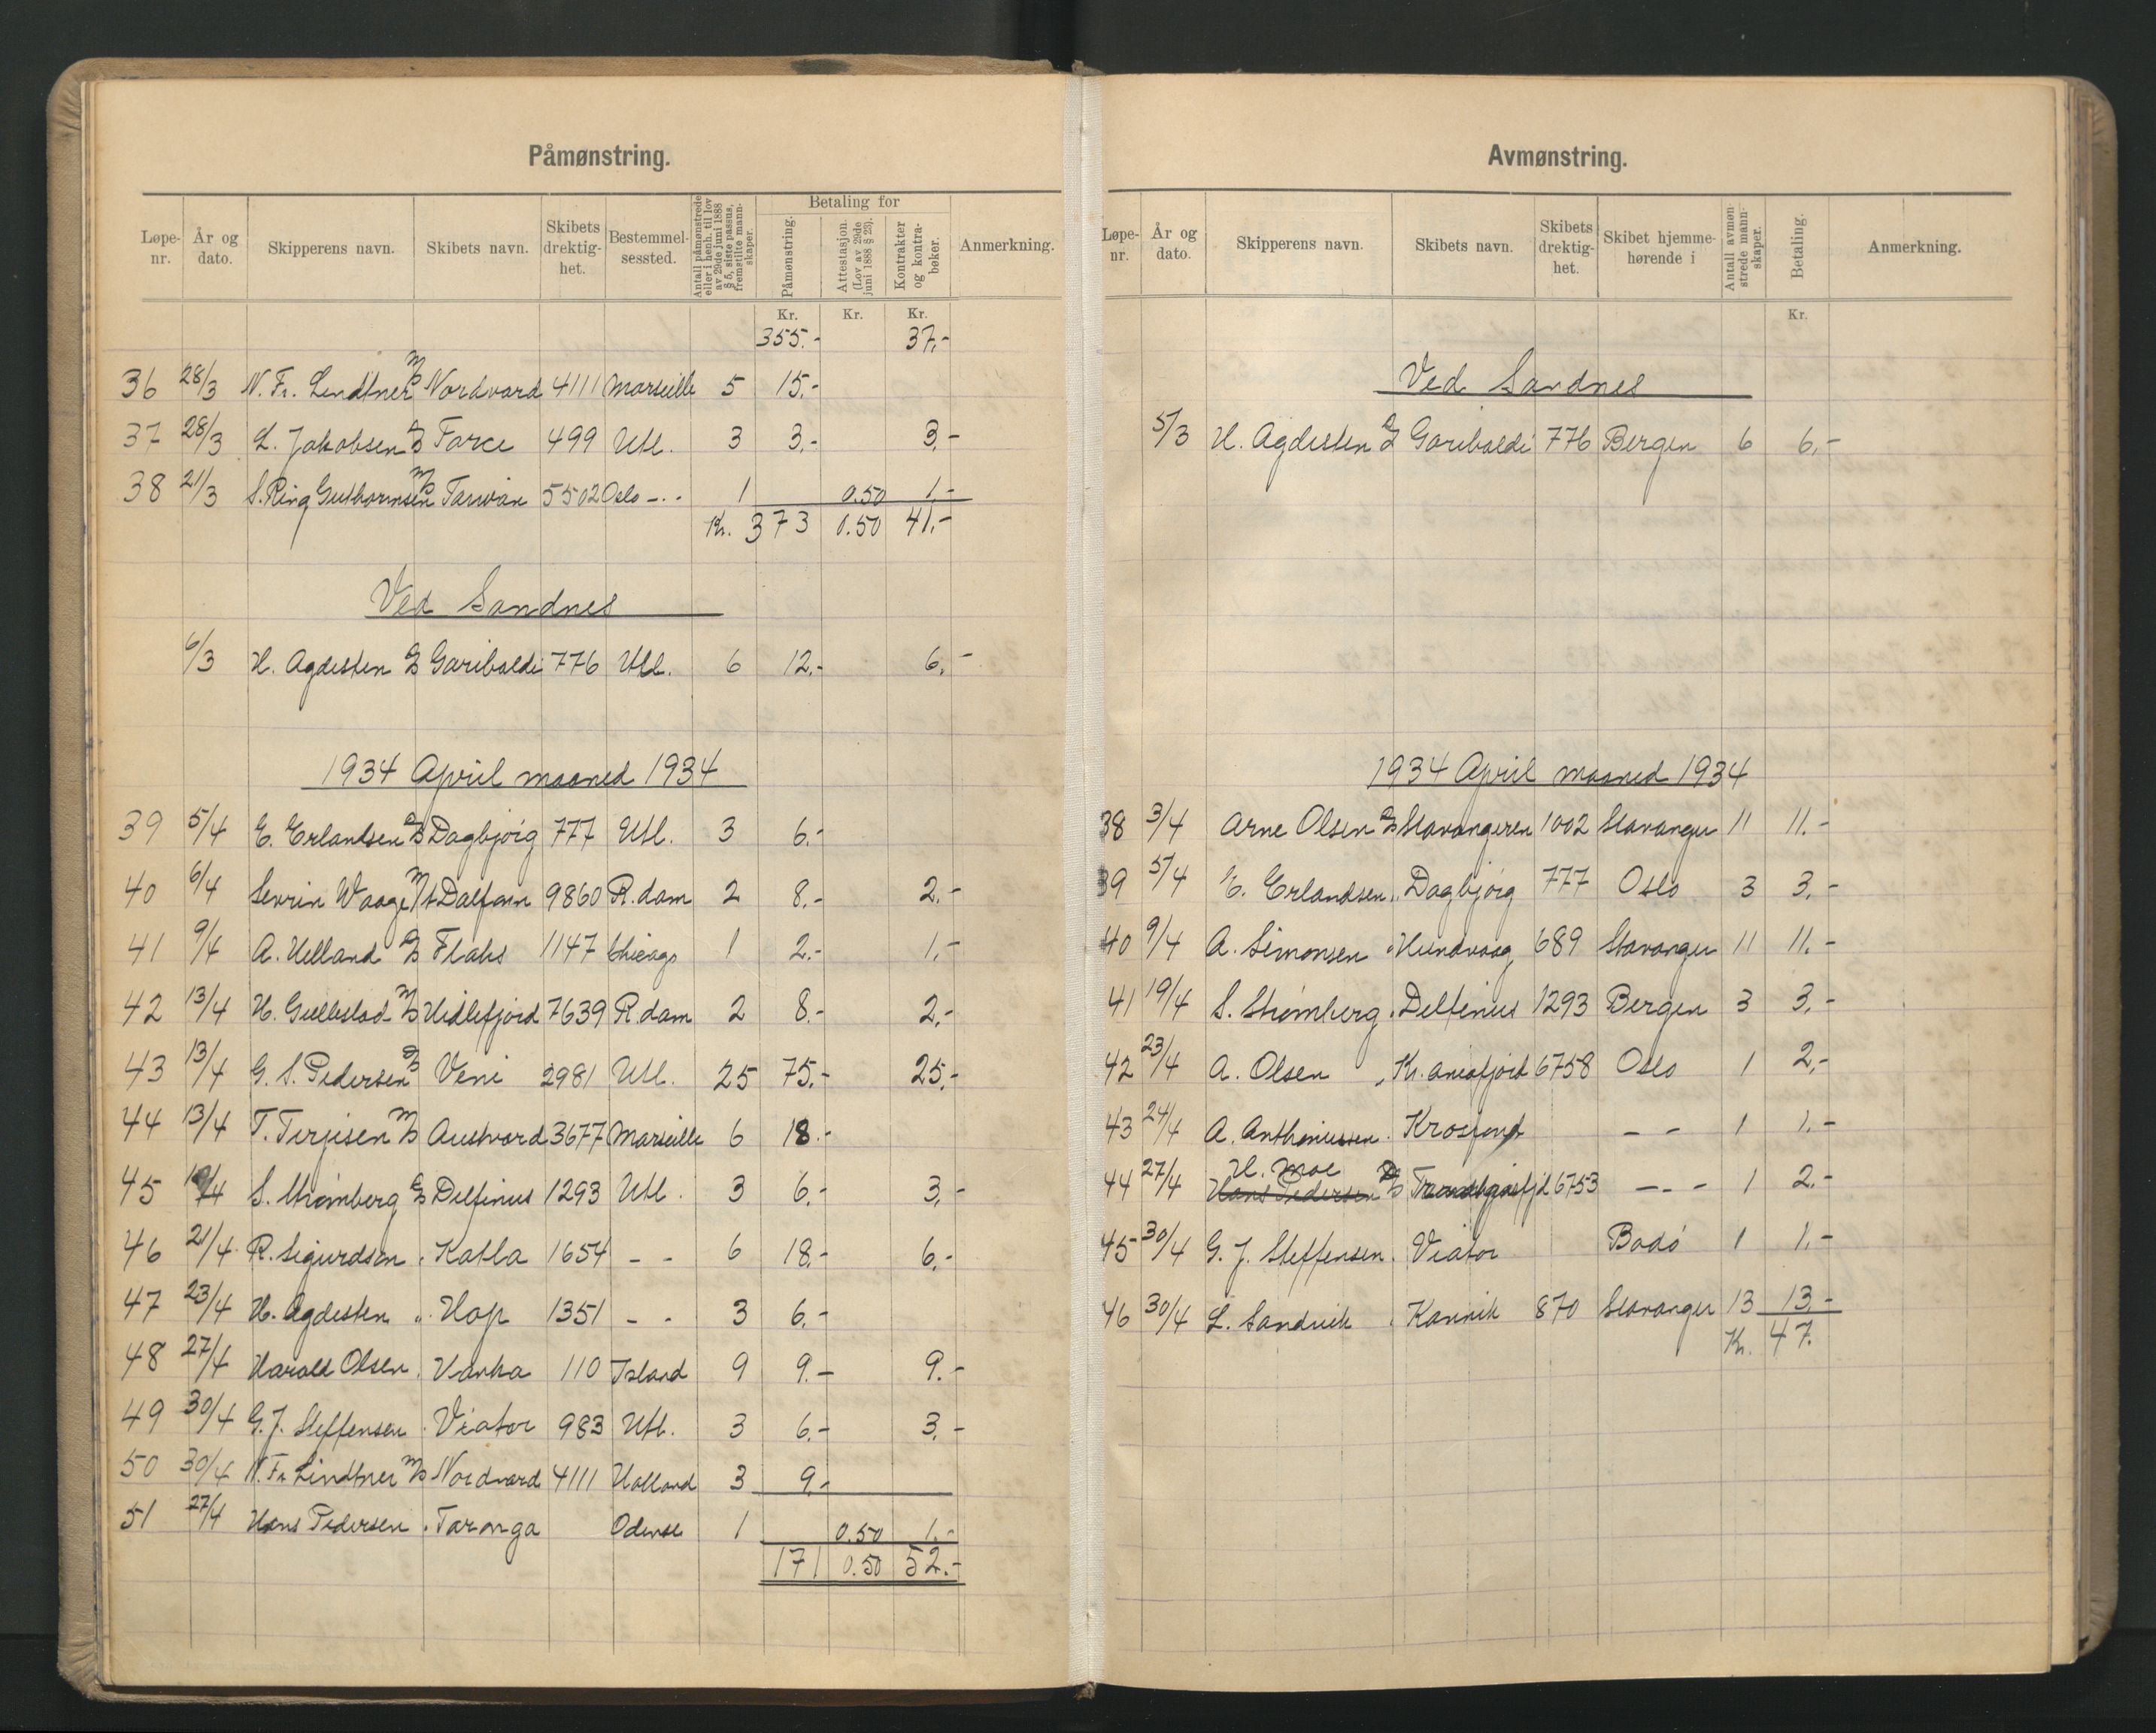 Påmønstring.
Løpe-nr. År og dato. Skipperens navn. Skibets navn. Skibets drektig-het. Bestemmel-sessted. Antall påmønstrede eller i henh. til lov av 29de juni 1888 § 5, siste passus, fremstilte mann-skaper. Betaling for Påmønstring. Attestasjon. (Lov av 29de juni 1888 § 23). Kontrakter og kontra-bøker. Anmerkning.
Kr. Kr. Kr.
355.- 37.-
36 28/3 N. Fr. Lindtner M/S Nordvard 4111 Marseille 5 15.-
37 28/3 L. Jakobsen D/S Farce 499 Utl. 3 3.- 3.-
38 21/3 S. Ring Guthormsen M/S Taiwan 5502 Oslo -.- 1 0.50 1.-
Kr. 373 0.50 41.-
Ved Sandnes
6/3 H. Agdesten D/S Garibaldi 776 Utl. 6 12.- 6.-
1934 April maaned 1934
39 5/4 E. Erlandsen D/S Dagbjørg 777 Utl. 3 6.-
40 6/4 Sevrin Waage M/t Dalfonn 9860 R.dam 2 8.- 2.-
41 9/4 A. Helland D/S Flaks 1147 Chicago 1 2.- 1.-
42 13/4 H. Gullestad M/S Hidlefjord 7639 R.dam 2 8.- 2.-
43 13/4 G. S. Pedersen D/S Veni 2981 Utl. 25 75.- 25.-
44 13/4 T. Terjesen M/S Austvard 3677 Marseille 6 18.-
45 19/4 S. Strømberg D/S Delfinus 1293 Utl. 3 6.- 3.-
46 21/4 R. Sigurdsen " Katla 1654 - - 6 18.- 6.-
47 23/4 H. Agdesten " Hop 1351 - - 3 6.-
48 27/4 Harald Olsen " Varka 110 Island 9 9.- 9.-
49 30/4 G. J. Steffensen " Viator 983 Utl. 3 6.- 3.-
50 30/4 N. Fr. Lindtner M/S Nordvard 4111 Holland 3 9.-
51 27/4 Hans Pedersen " Taronga Odense 1 0.50 1.-
171 0.50 52.-
Avmønstring.
Løpe-nr. År og dato. Skipperens navn. Skibets navn. Skibets drektig-het. Skibet hjemme-hørende i Antall avmøn-strede mann-skaper. Betaling. Anmerkning.
Kr.
Ved Sandnes
5/3 H. Agdesten D/S Garibaldi 776 Bergen 6 6.-
1934 April maaned 1934
38 3/4 Arne Olsen D/S Stavangeren 1002 Stavanger 11 11.-
39 5/4 E. Erlandsen " Dagbjørg 777 Oslo 3 3.-
40 9/4 A. Simonsen " Hundvaag 689 Stavanger 11 11.-
41 19/4 S. Strømberg " Delfinus 1293 Bergen 3 3.-
42 23/4 A. Olsen " Kr.aniafjord 6758 Oslo 1 2.-
43 24/4 A. Anthoniussen " Krosfond - - 1 1.-
H. Moe
44 27/4 Hans Pedersen D/S 6753 -.- 1 2.-
45 30/4 G. J. Steffensen " Viator Bodø 1 1.-
46 30/4 L. Sandvik " Kannik 870 Stavanger 13 13.-
Kr. 47.